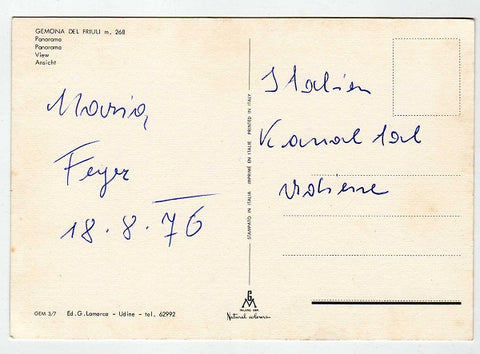 GEMONA DEL FRIULI m. 268
Panorama
Panorama
View
Ansicht
Maria,
Feyer
18.8.76
Italien
Kanal tal
STAMPATO IN ITALIA IMPRIMÉ EN ITALIE PRINTED IN ITALY
GEM 3/7 Ed. G. Lamarca - Udine - tel. 62992
Natural colours